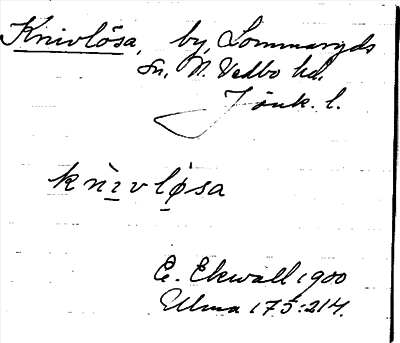 Knivlösa, by, Lommaryds
sn, N. Vedbo hd.
Jönk. l.
knìvlø̀sa
E. Ekwall 1900
Ulma 175:214.